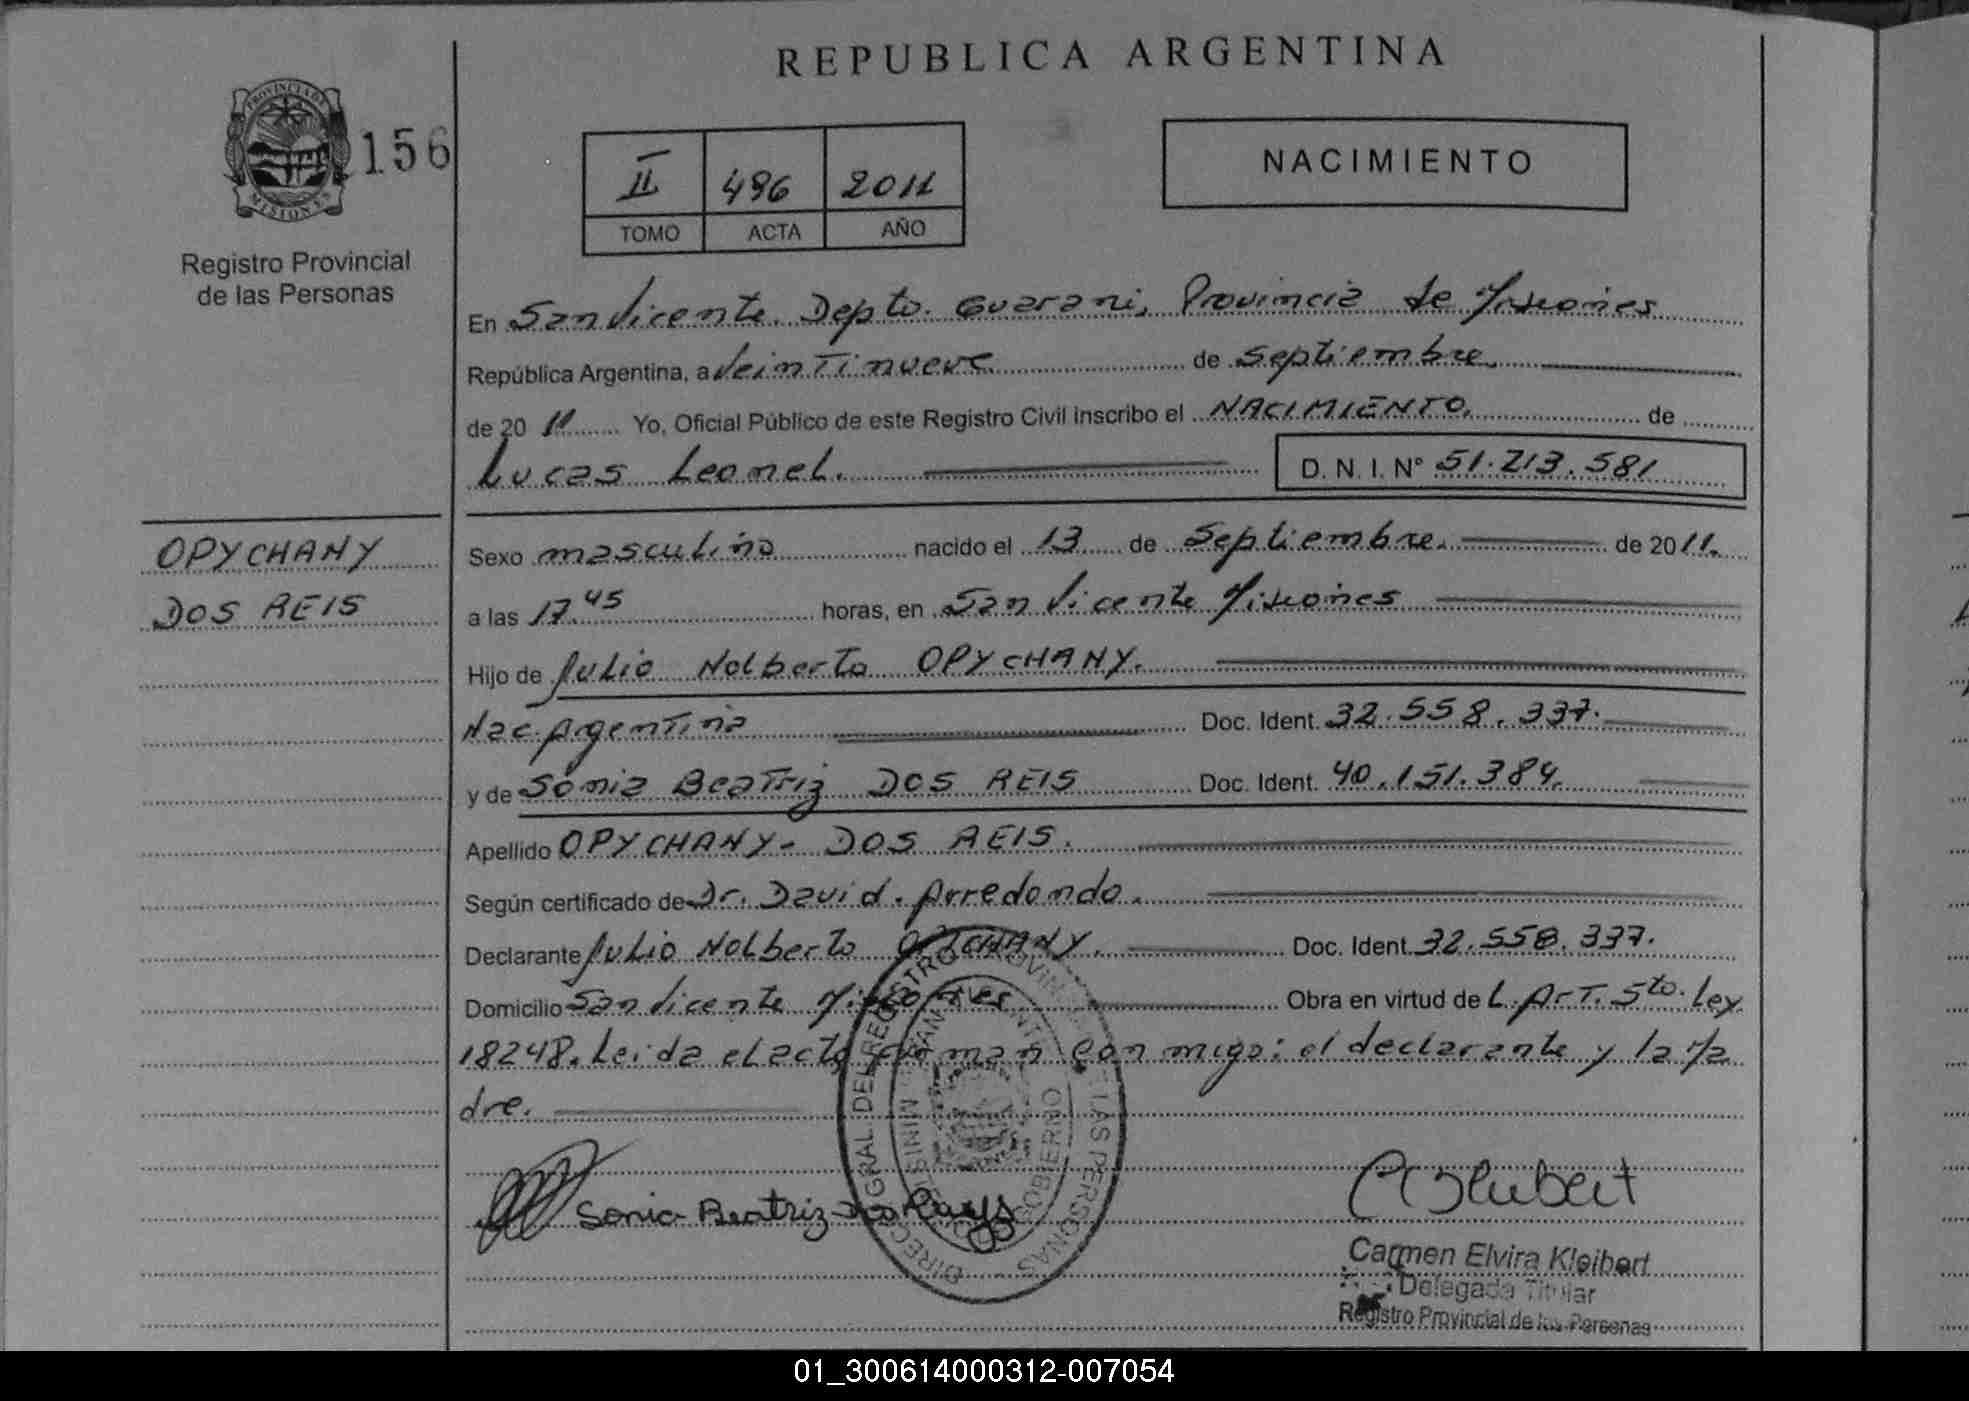 REPUBLICA ARGENTINA
PROVINCIA DE
MISIONES
156
Registro Provincial
de las Personas
II 496 2011
TOMO ACTA AÑO
NACIMIENTO
En San Vicente. Depto. Guarani, Provincia de Misiones
República Argentina, a Veintinueve de Septiembre
de 2011 Yo, Oficial Público de este Registro Civil inscribo el NACIMIENTO. de
Lucas Leonel. D. N. I. N° 51.213.581
OPYCHANY
DOS REIS
Sexo masculino nacido el 13 de Septiembre. de 2011.
a las 17.45 horas, en San Vicente Misiones
Hijo de Julio Nolberto OPYCHANY.
Nac. Argentina Doc. Ident. 32.558.337.
y de Sonia Beatriz DOS REIS Doc. Ident. 40.151.384.
Apellido OPYCHANY - DOS REIS.
Según certificado de Dr. David. Arredondo.
Declarante Julio Nolberto OPYCHANY. Doc. Ident. 32.558.337.
Domicilio San Vicente Misiones Obra en virtud de L. Art. 5to. Ley
18248. Leida el acta firman conmigo: el declarante y la Ma
dre.
DIREC GRAL DEL REGISTRO PROVIN LAS PERSONAS
GOBIERNO
Sonia Beatriz Dos
Carmen Elvira Kleibert
Delegada Titular
Registro Provincial de las Personas
01_300614000312-007054